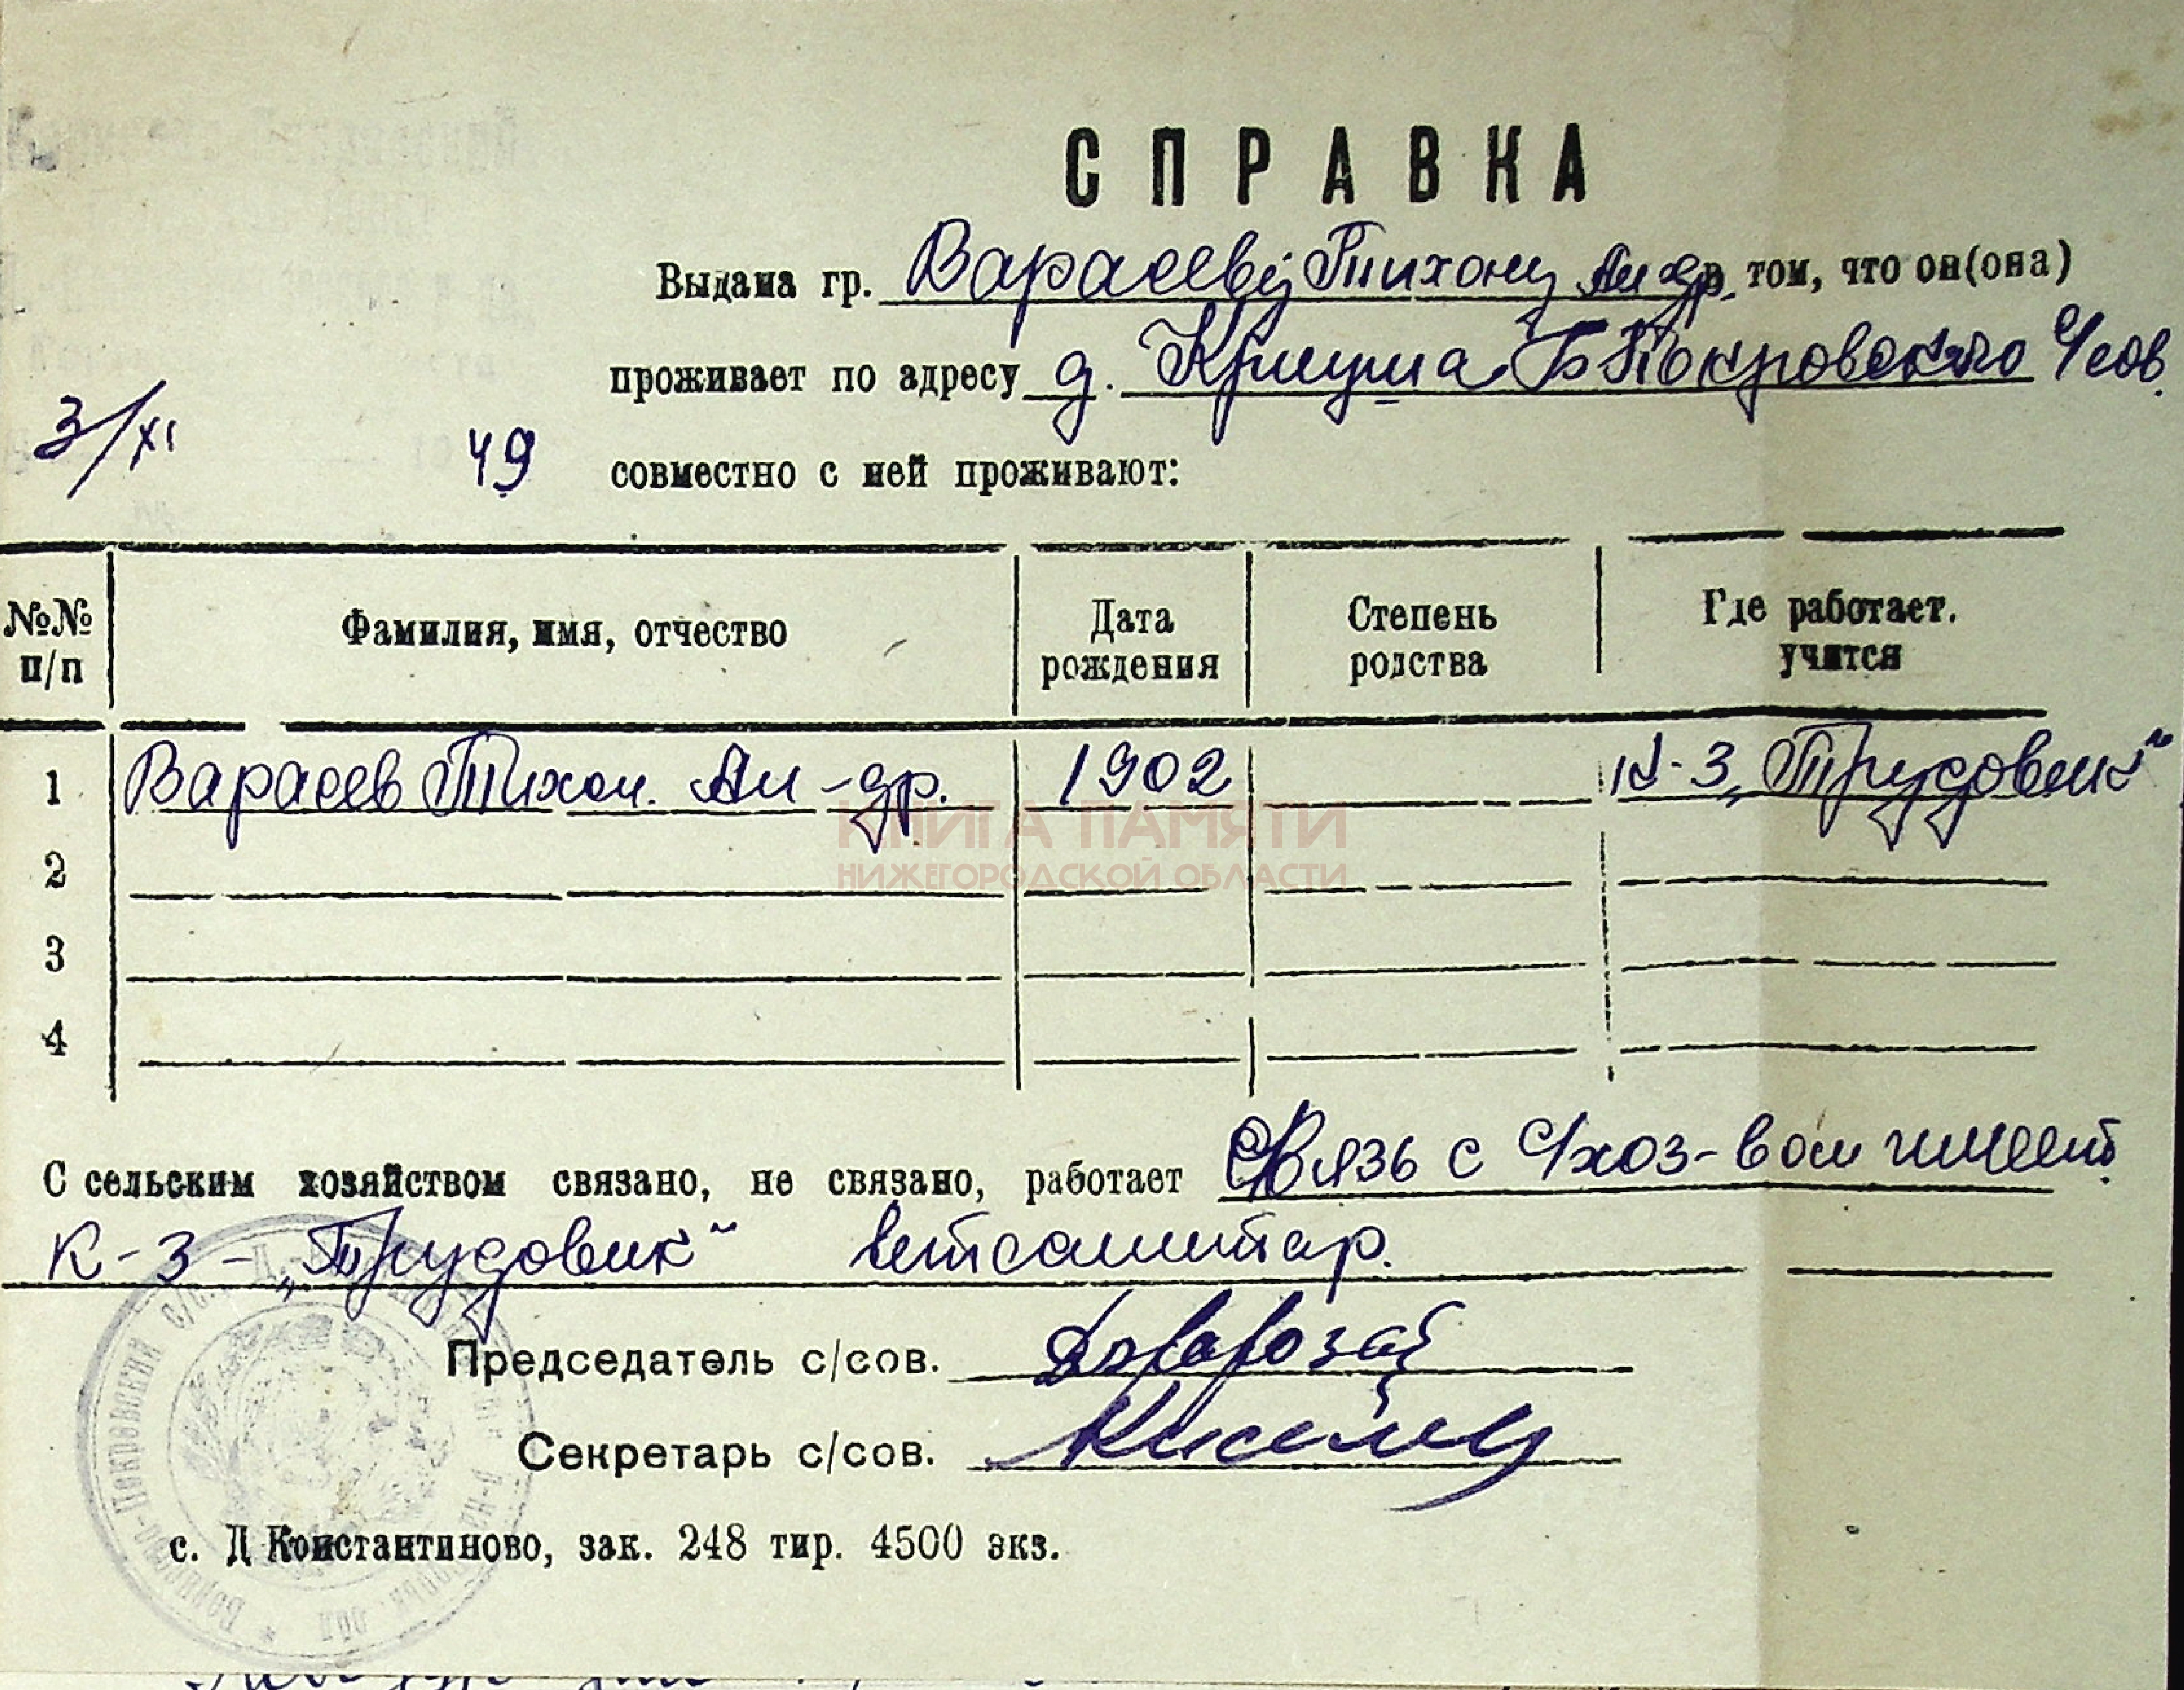 СПРАВКА
Выдана гр. Варасеву Тихону Андр. в том, что он(она)
проживает по адресу д. Криуша Б Покровского с/сов.
3/XI 49 совместно с ней проживают:
№№ п/п Фамилия, имя, отчество Дата рождения Степень родства Где работает. учится
1 Варасев Тихон. Ан-др. 1902 к-з „Трудовик“
КНИГА ПАМЯТИ
НИЖЕГОРОДСКОЙ ОБЛАСТИ
2
3
4
С сельским хозяйством связано, не связано, работает Связь с с/хоз-вом имеет.
к-з - „Трудовик“ ветсанитар.
Председатель с/сов.
Секретарь с/сов.
с. Д Константиново, зак. 248 тир. 4500 экз.